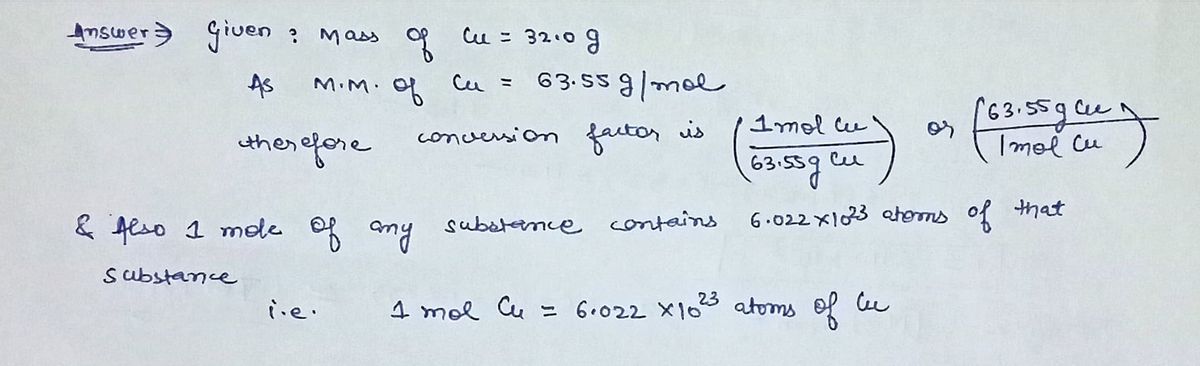 Answer⇒ Given : Mass of Cu = 32.0 g
As M.M. of Cu = 63.55 g/mol
therefore conversion factor is (1 mol Cu / 63.55 g Cu) or (63.55 g Cu / 1 mol Cu)
& Also 1 mole of any substance contains 6.022 ×10²³ atoms of that
substance
i.e. 1 mol Cu = 6.022 ×10²³ atoms of Cu